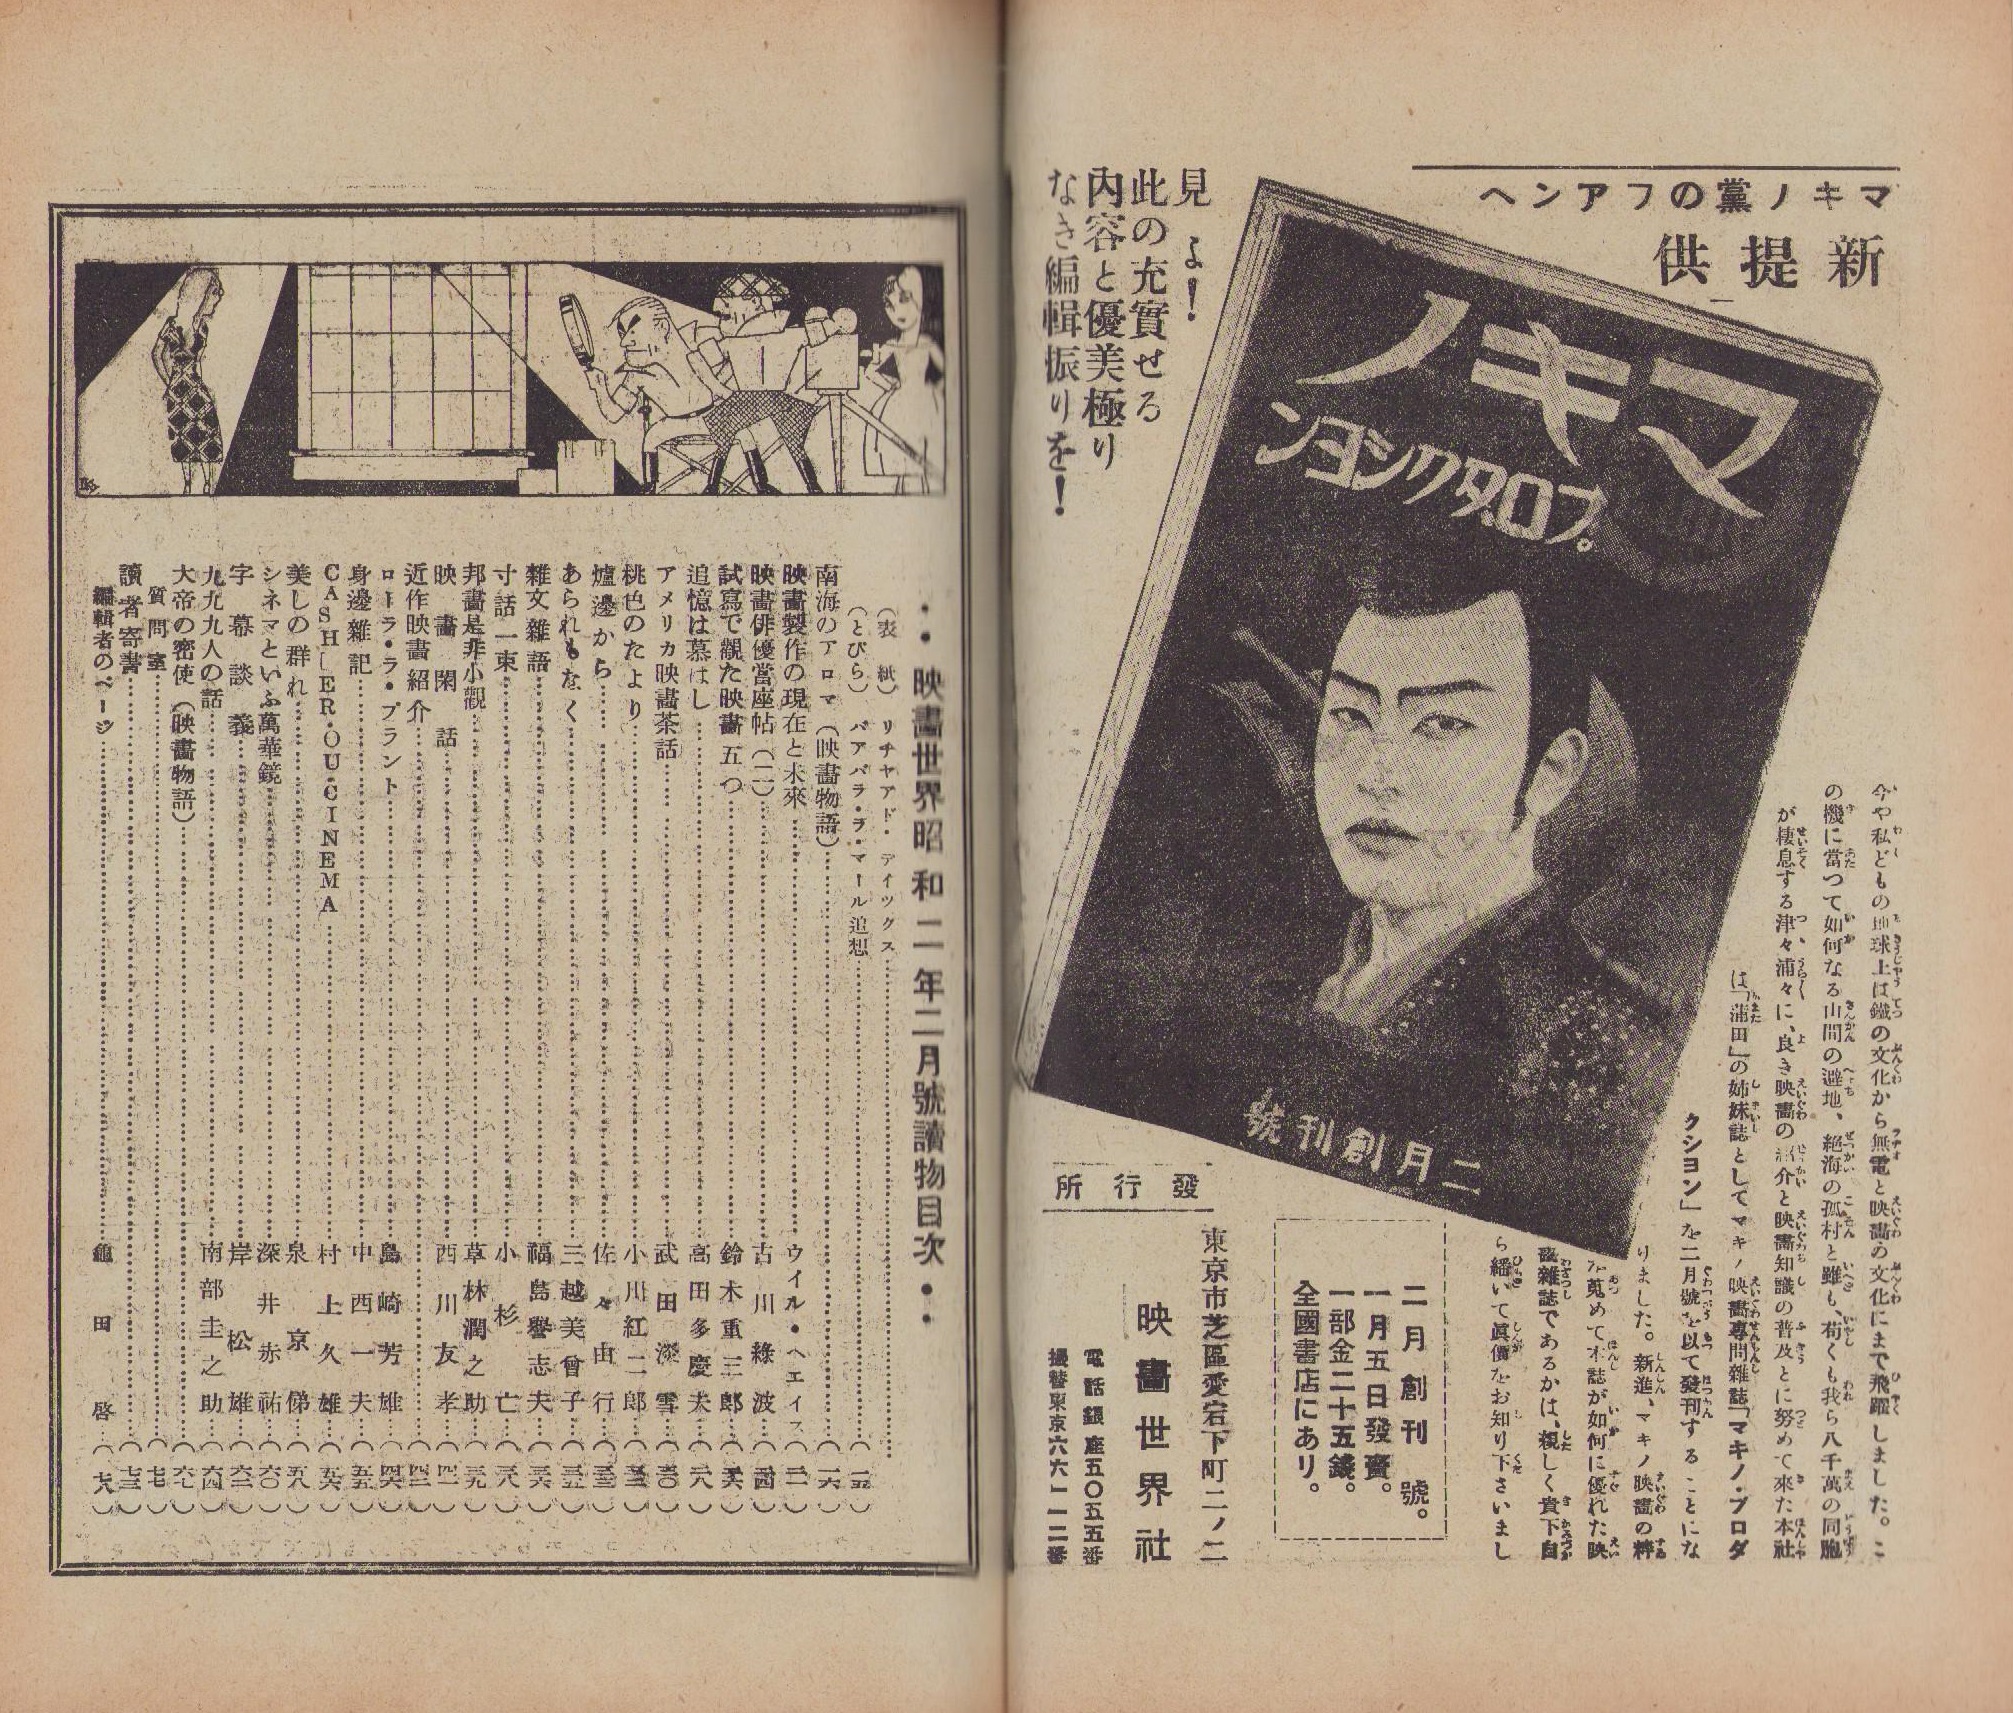 マキノ黨のフアンへ
新提供
マキノ
プロダクシヨン
二月創刊號
見よ!
此の充實せる
內容と優美極り
なき編輯振りを!
今や私どもの地球上は鐵の文化から無電と映畵の文化にまで飛躍しました。こ
の機に當つて如何なる山間の避地、絕海の孤村と雖も、苟くも我ら八千萬の同胞
が棲息する津々浦々に、良き映畵の紹介と映畵知識の普及とに努めて來た本社
は「蒲田」の姉妹誌としてマキノ映畵專問雜誌「マキノ・プロダ
クシヨン」を二月號を以て發刊することにな
りました。新進、マキノ映畵の粹
を蒐めて本誌が如何に優れた映
畵雜誌であるかは、親しく貴下自
ら繙いて眞價をお知り下さいまし
二月創刊號。
一月五日發賣。
一部金二十五錢。
全國書店にあり。
發行所
東京市芝區愛宕下町二ノ二
映畵世界社
電話銀座五〇五五番
振替東京六六一一二番
:映畵世界昭和二年二月號讀物目次:
(表紙)リチヤアド・デイツクス
(とびら)バアバラ・ラ・マール追想(一五)
南海のアロマ(映畵物語)(一六)
映畵製作の現在と未來 ウイル・ヘエイス(二一)
映畵俳優當座帖(二) 古川綠波(二四)
試寫で觀た映畵五つ 鈴木重三郎(二六)
追憶は慕はし 高田多慶太(二八)
アメリカ映畵茶話 武田淡雪(三〇)
桃色のたより 小川紅二郎
爐邊から 佐々由行(三三)
あられもなく 三越美曾子(三五)
雜文雜語 福島譽志夫(三六)
寸話一束 小杉亡(三八)
邦畵是非小觀 草林潤之助(三九)
映畵閑話 西川友孝(四一)
近作映畵紹介(四三)
ローラ・ラ・プラント 島崎芳雄(四六)
身邊雜記 中西一夫(五五)
CASHIER・OU・CINEMA 村上久雄(五六)
美しの群れ 泉京俤(五八)
シネマといふ萬華鏡 深井赤祐(六〇)
字幕談義 岸松雄(六二)
九九九人の話 南部圭之助(六四)
大帝の密使(映畵物語)(六七)
質問室(七一)
讀者寄書(七三)
編輯者のページ 龜田啓(七八)